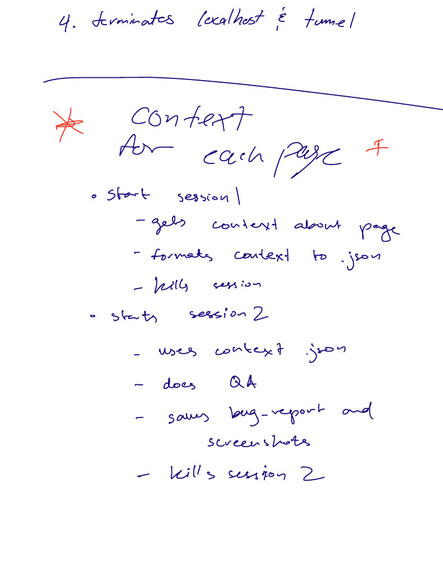 4. terminates localhost & tunnel
context
for each page
• start session 1
- gets context about page
- formats context to .json
- kills session
• starts session 2
- uses context .json
- does QA
- saves bug-report and
screenshots
- kills session 2